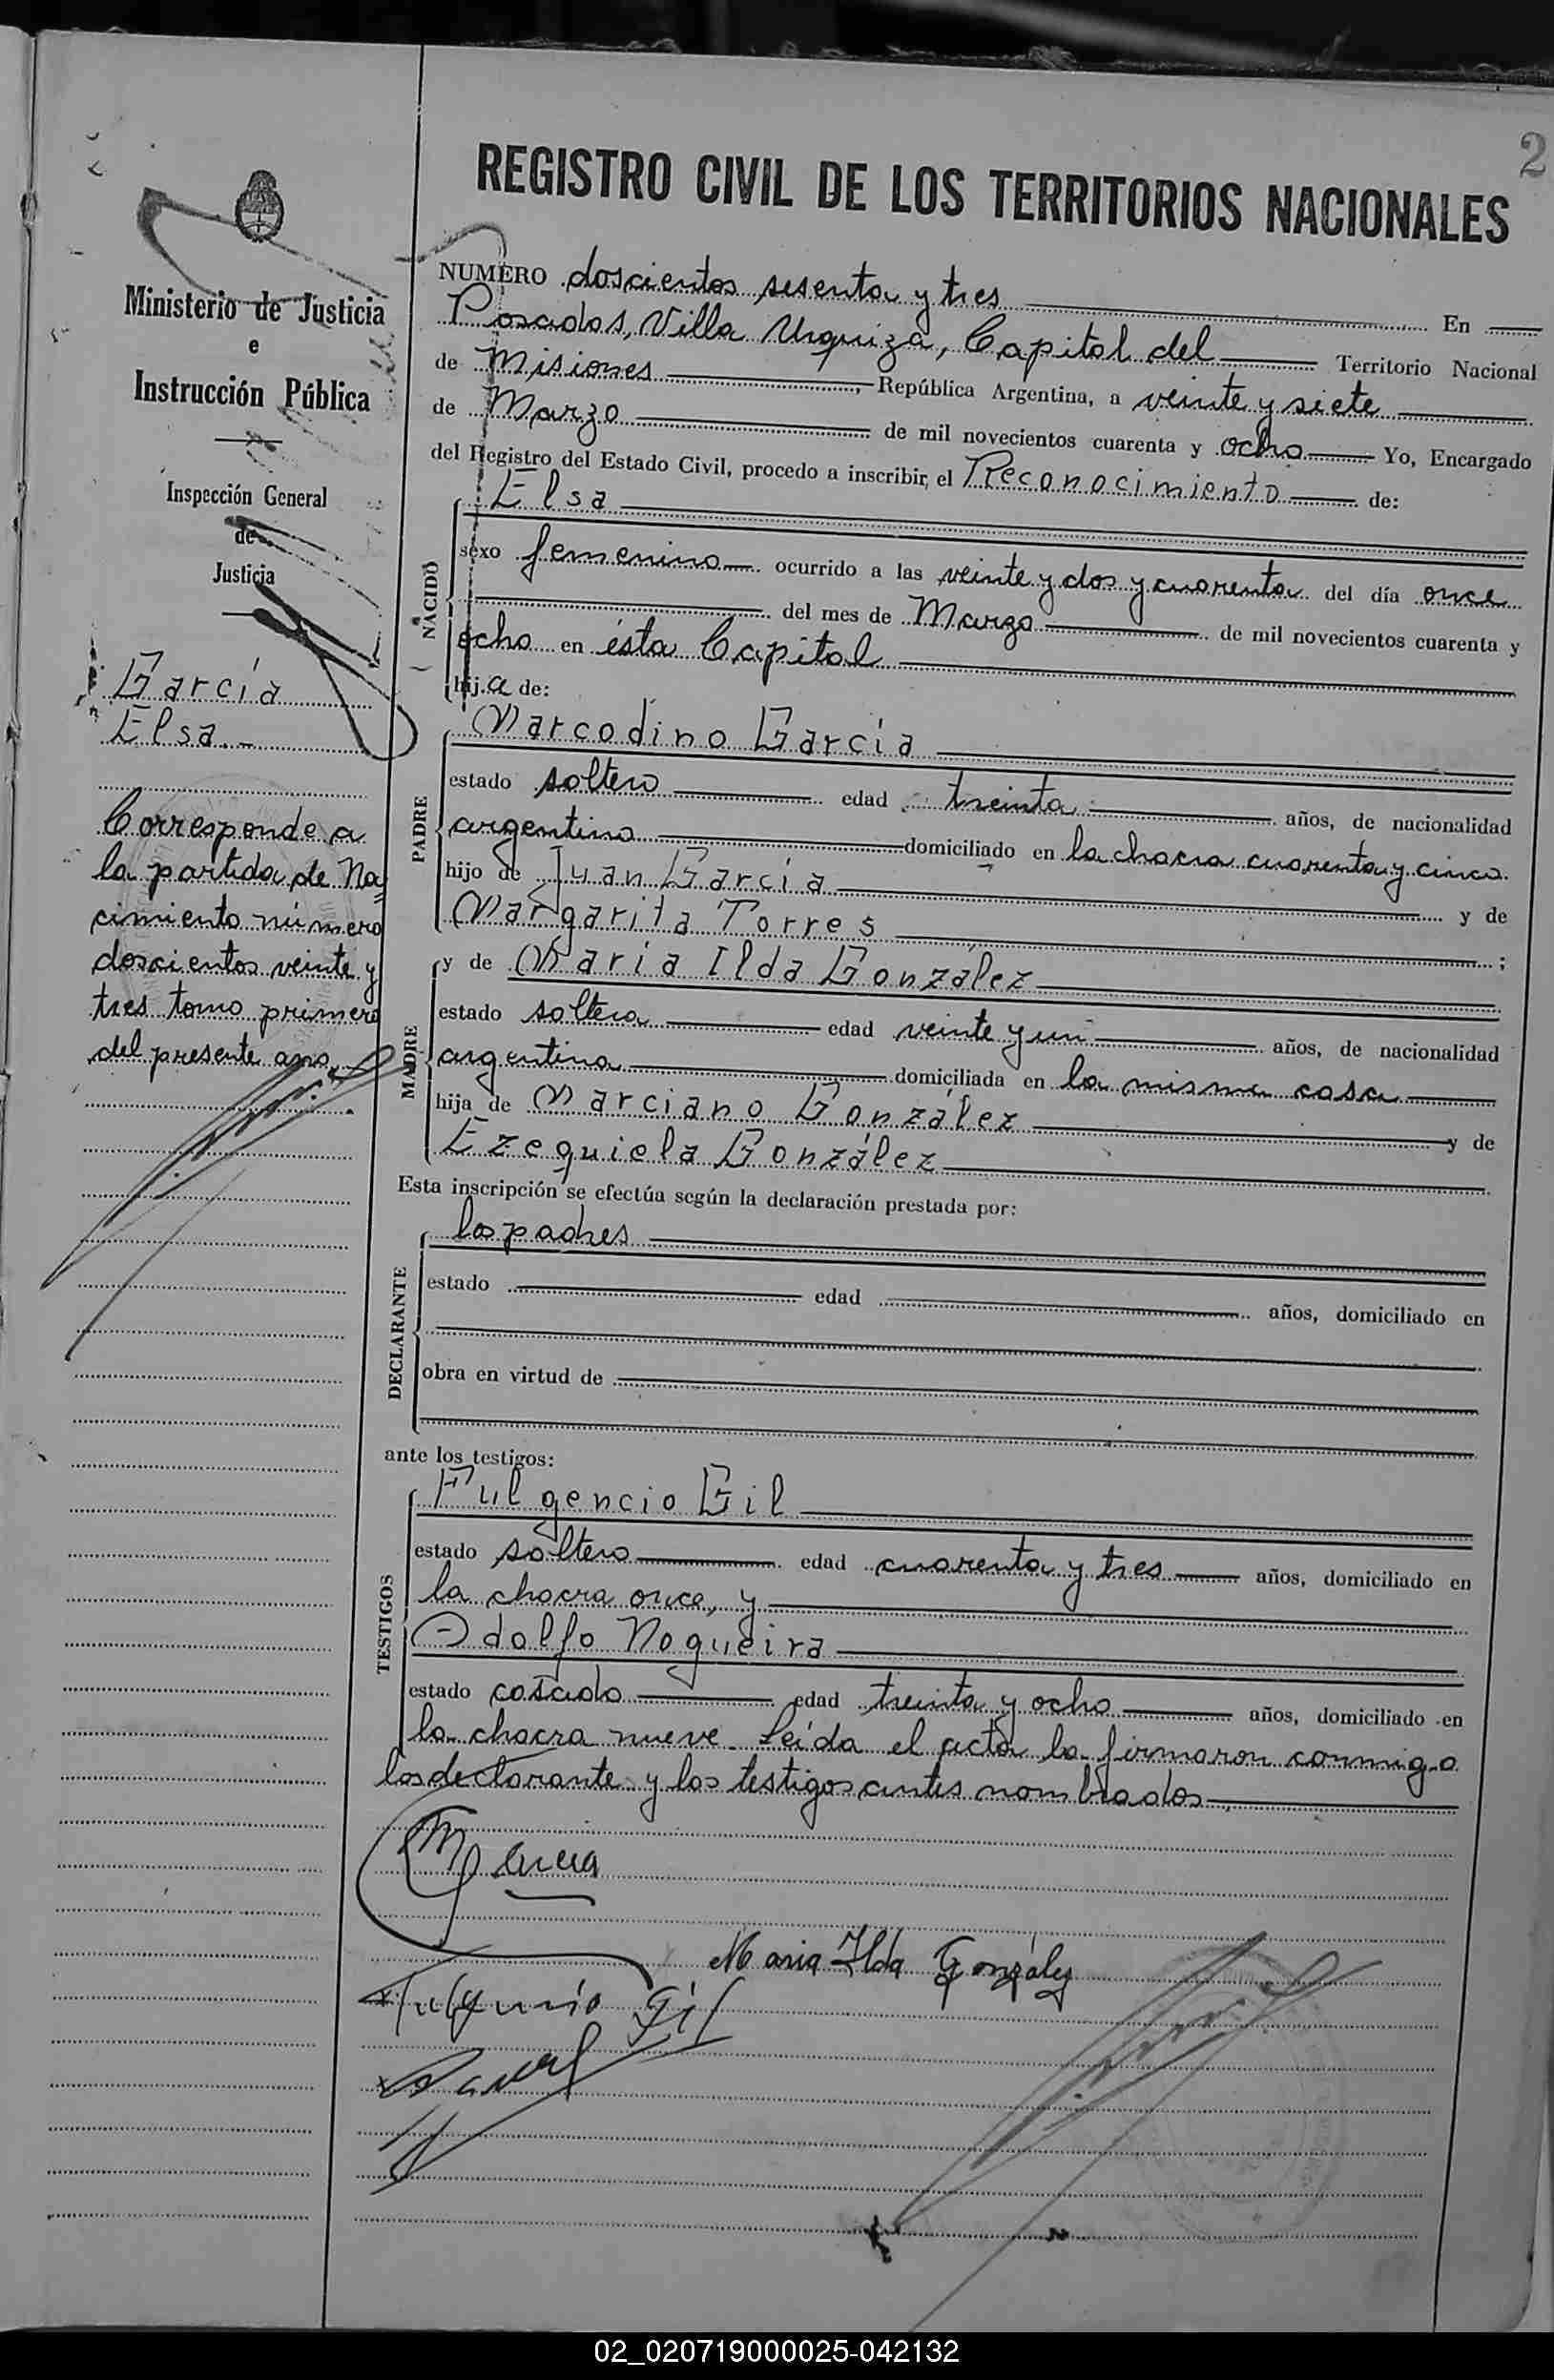 2
REGISTRO CIVIL DE LOS TERRITORIOS NACIONALES
Ministerio de Justicia
e
Instrucción Pública
Inspección General
de
Justicia
García
Elsa.-
Corresponde a
la partida de Na=
cimiento número
doscientos veinte y
tres tomo primero
del presente año.
NUMERO doscientos sesenta y tres En
Posadas, Villa Urquiza, Capital del Territorio Nacional
de Misiones, República Argentina, a veinte y siete
de Marzo de mil novecientos cuarenta y ocho Yo, Encargado
del Registro del Estado Civil, procedo a inscribir, el Reconocimiento de:
NACIDO
Elsa
sexo femenino ocurrido a las veinte y dos y cuarenta del día once
del mes de Marzo de mil novecientos cuarenta y
ocho en ésta Capital
hija de:
PADRE
Marcodino García
estado soltero edad treinta años, de nacionalidad
argentino domiciliado en la chacra cuarenta y cinco
hijo de Juan García y de
Margarita Torres ;
MADRE
y de María Ilda González
estado soltera edad veinte y un años, de nacionalidad
argentina domiciliada en la misma casa
hija de Marciano González y de
Ezequiela González
Esta inscripción se efectúa según la declaración prestada por:
DECLARANTE
los padres
estado edad años, domiciliado en
obra en virtud de
ante los testigos:
TESTIGOS
Fulgencio Gil
estado soltero edad cuarenta y tres años, domiciliado en
la chacra once, y
Adolfo Nogueira
estado casado edad treinta y ocho años, domiciliado en
la chacra nueve. Leída el acta la firmaron conmigo
los declarante y los testigos antes nombrados
M García
Maria Ilda González
Fulgencio Gil
02_020719000025-042132